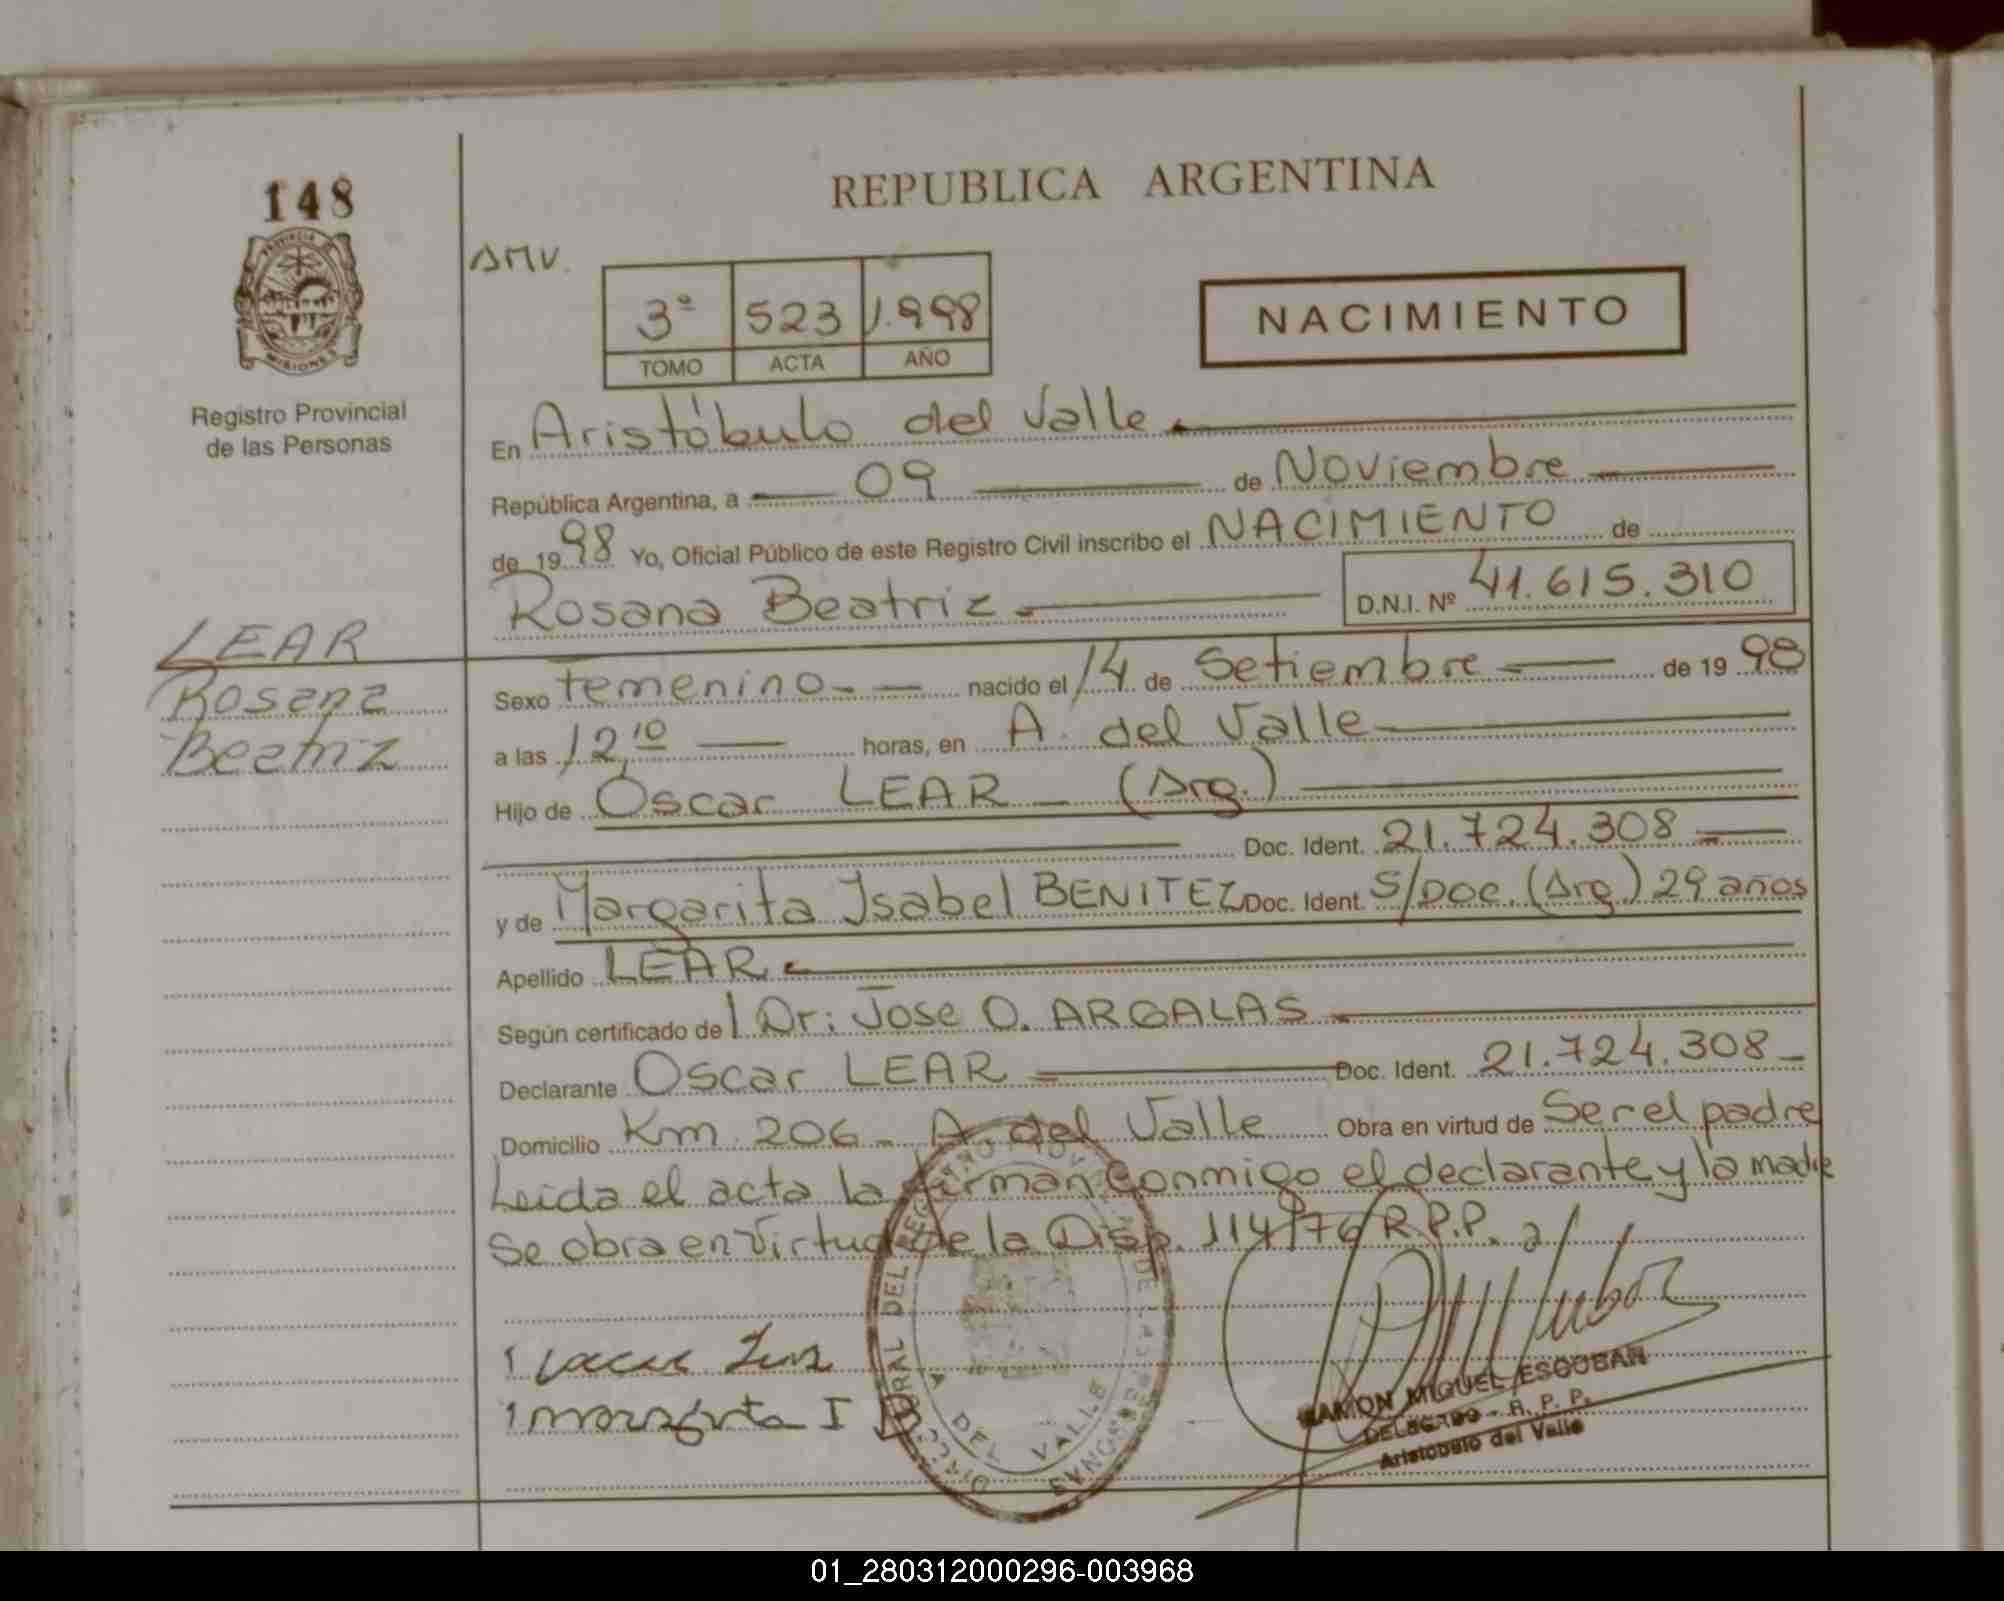 148
REPUBLICA ARGENTINA
PROVINCIA DE
MISIONES
AMV.
3ª 523 1.998
TOMO ACTA AÑO
NACIMIENTO
Registro Provincial
de las Personas
En Aristóbulo del Valle
República Argentina, a 09 de Noviembre
de 1998 Yo, Oficial Público de este Registro Civil inscribo el NACIMIENTO de
Rosana Beatriz D.N.I. Nº 41.615.310
LEAR
Rosana
Beatriz
Sexo Femenino nacido el 14 de Setiembre de 1998
a las 12,10 horas, en A. del Valle
Hijo de Oscar LEAR (Arg.)
Doc. Ident. 21.724.308
y de Margarita Ysabel BENITEZ Doc. Ident. S/DOC. (Arg.) 29 años
Apellido LEAR
Según certificado de Dr: Jose O. ARGALAS
Declarante Oscar LEAR Doc. Ident. 21.724.308
Domicilio Km 206 - A. del Valle Obra en virtud de Ser el padre
Leida el acta la firman conmigo el declarante y la madre
Se obra en virtud de la Disp. 114/76 R.P.P.
Margarita I
A DEL VALLE
RAMON MIGUEL ESCOBAR
DELEGADO - R. P. P.
Aristobulo del Valle
01_280312000296-003968